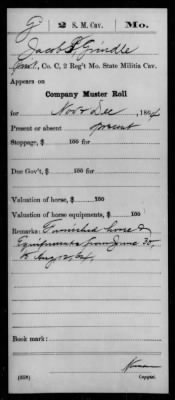 G | 2 S. M. Cav. | Mo.
Jacob F. Grindle
Priv't, Co. C, 2 Reg't Mo. State Militia Cav.
Appears on
Company Muster Roll
for Nov & Dec, 1864
Present or absent present
Stoppage, $ 100 for
Due Gov't, $ 100 for
Valuation of horse, $ 100
Valuation of horse equipments, $ 100
Remarks: Furnished horse &
Equipments from June 30,
to Aug 12, 64
Book mark:
(358)
Copyist.